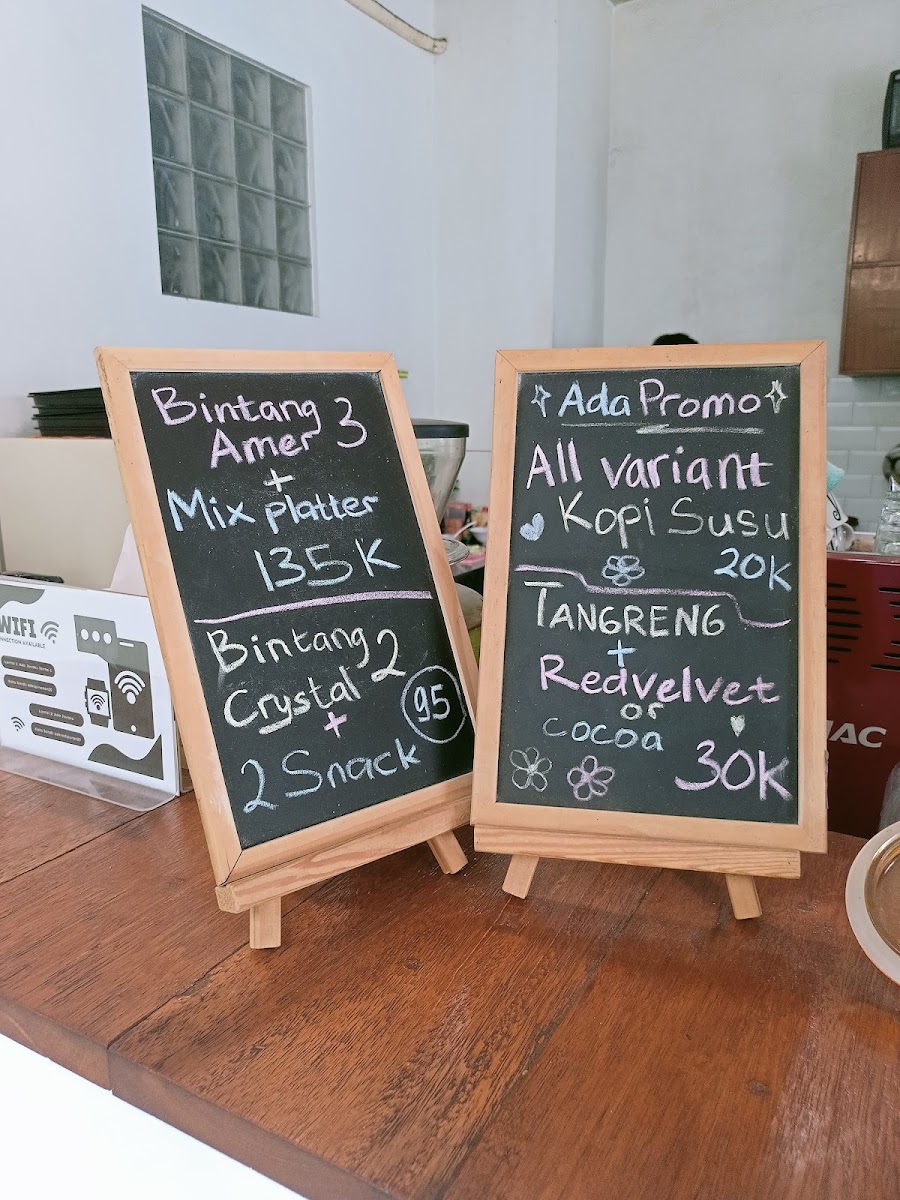 Bintang 3
Amer
+
Mix platter
135K
Bintang 2
Crystal
+
95
2 Snack
Ada Promo
All variant
Kopi Susu
20K
TANGRENG
+
Redvelvet
or
cocoa
30K
WIFI
CONNECTION AVAILABLE
NAC